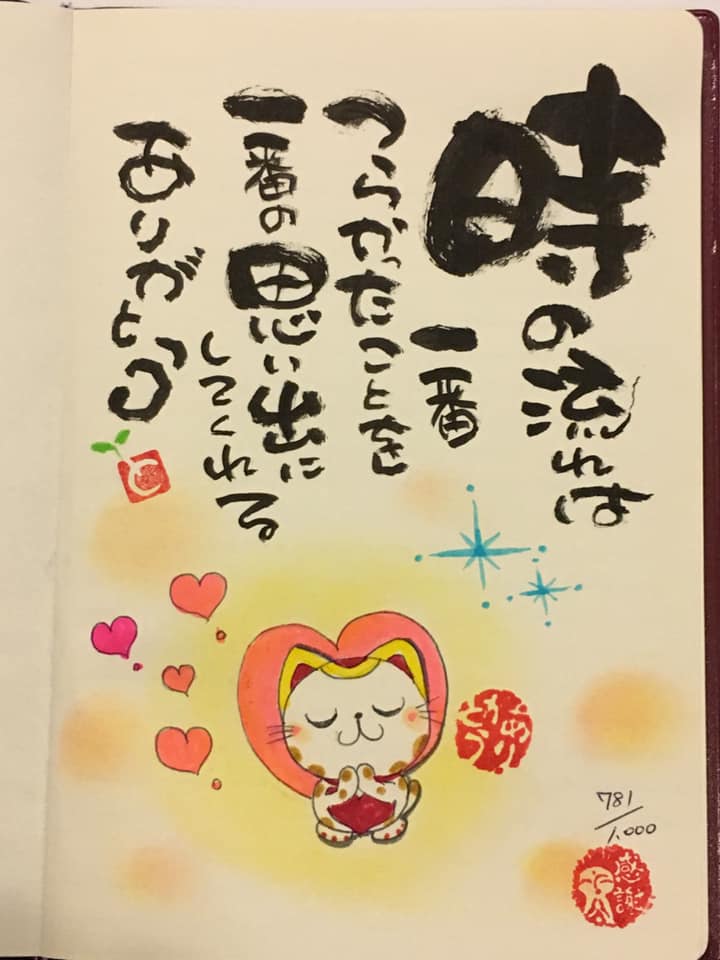 時の流れは
一番
つらかったことを
一番の思い出に
してくれる
ありがとう
ありがとう
781/1.000
感謝